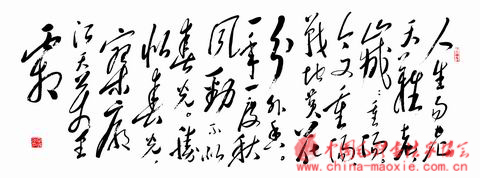 人生易老
天難老
歲歲重陽
今又重陽
戰地黄花
分外香。
一年一度秋
風勁不似
春光。勝
似春光，
寥廓
江天萬里
霜
www.china-maoxie.com.cn